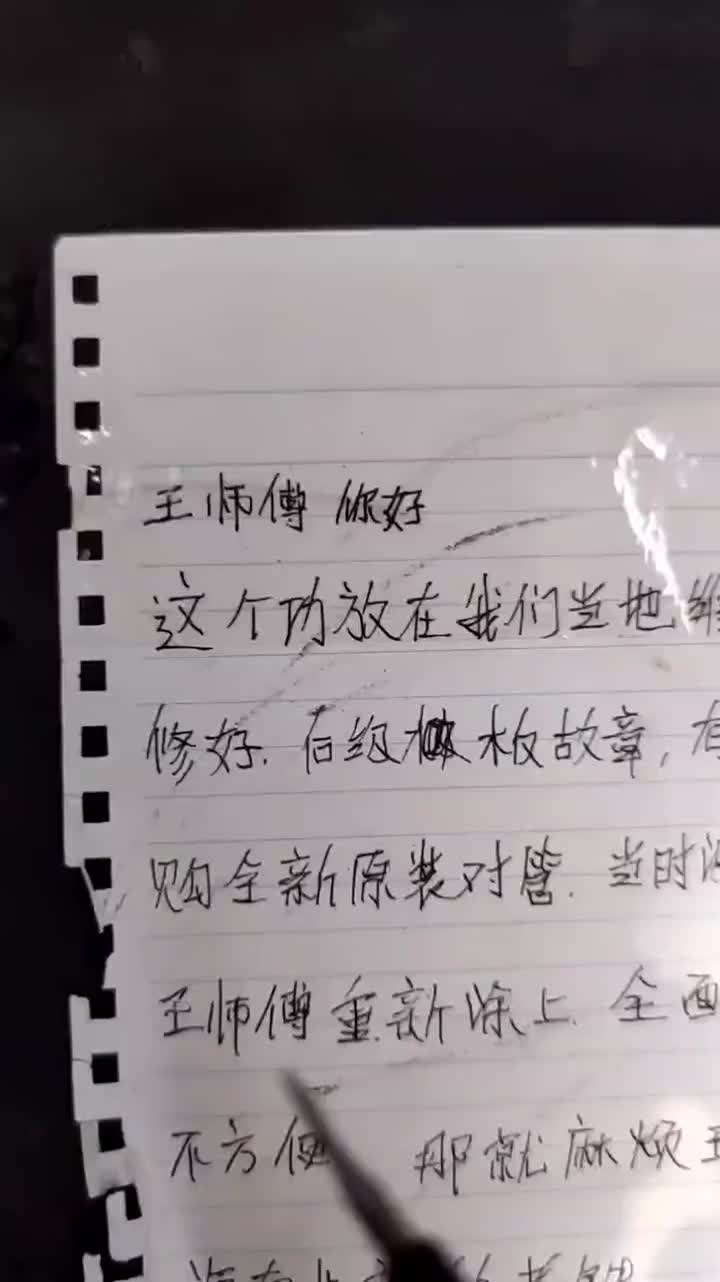 王师傅 你好
这个功放在我们当地维
修好.后级板故章,有
购全新原装对管.当时没
王师傅重新涂上.全面
不方便 那就麻烦王